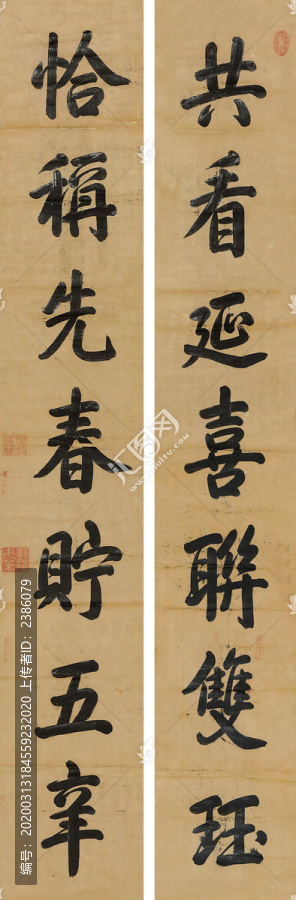 共看延喜聯雙珏
恰稱先春貯五辛
汇图网
编号：20200313184559232020 上传者ID：2386079